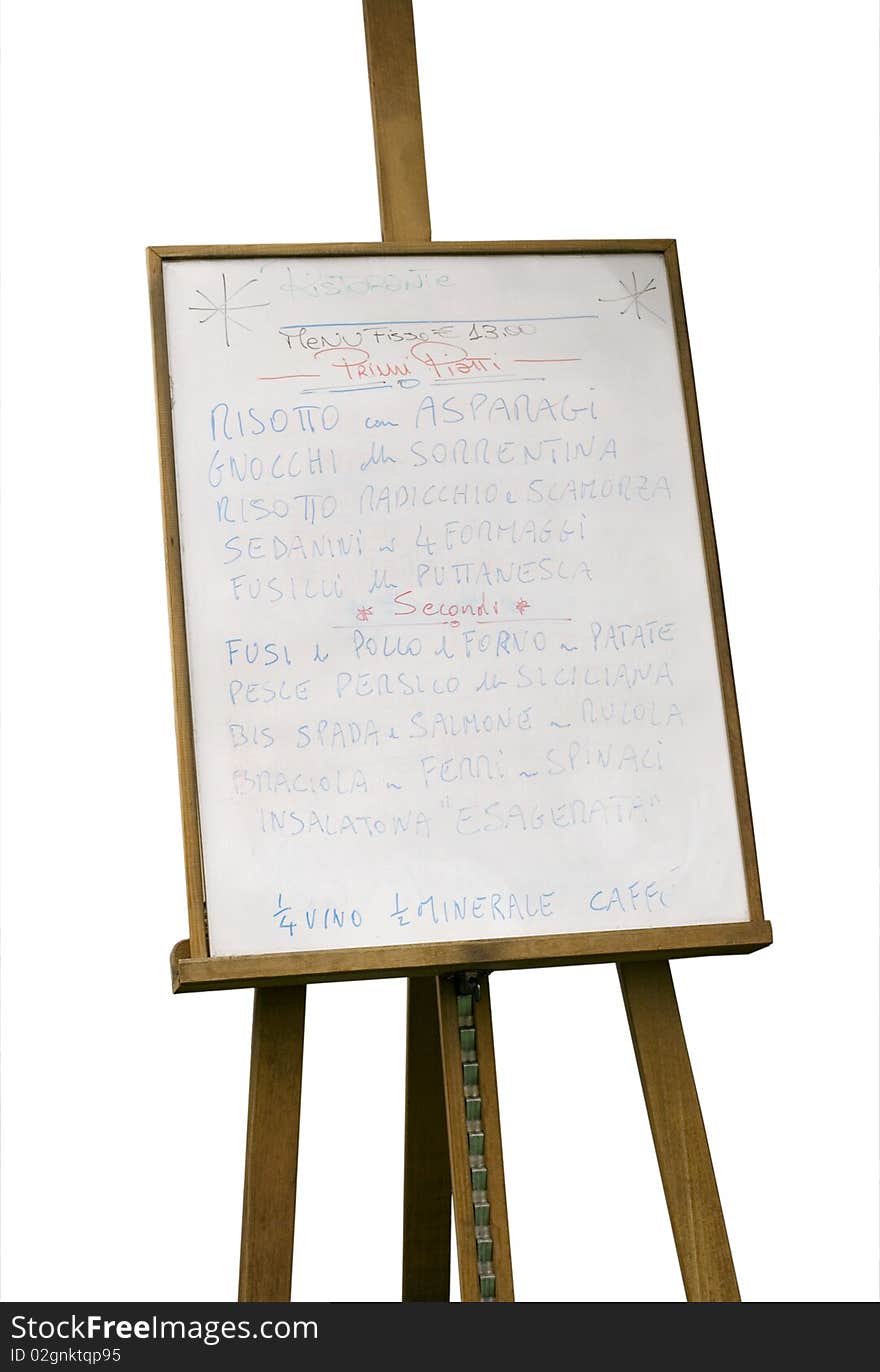 Ristorante
Menu Fisso € 13.00
Primi Piatti
RISOTTO con ASPARAGI
GNOCCHI alla SORRENTINA
RISOTTO RADICCHIO e SCAMORZA
SEDANINI ai 4 FORMAGGI
FUSILLI alla PUTTANESCA
* Secondi *
FUSI di POLLO al FORNO PATATE
PESCE PERSICO alla SICILIANA
BIS SPADA e SALMONE RUCOLA
BRACIOLA ai FERRI SPINACI
INSALATONA "ESAGERATA"
1/4 VINO 1/2 MINERALE CAFFÈ
StockFreeImages.com
ID 02gnktqp95
© Dreamstime.com